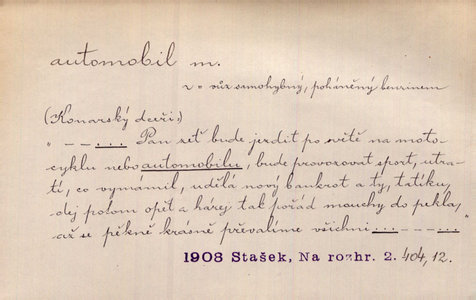 automobil m.
2 = vůz samohybný, poháněný benzinem
(Konarský dceři:)
" – – ... Pan zeť bude jezdit po světě na moto-
cyklu nebo automobilu, bude provozovat sport, utra-
tí, co vymámil, udělá nový bankrot a ty, tatíku,
dej potom opět a házej tak pořád mouchy do pekla,
až se pěkně krásně převalíme všichni ... – – ... "
1908 Stašek, Na rozhr. 2. 404, 12.